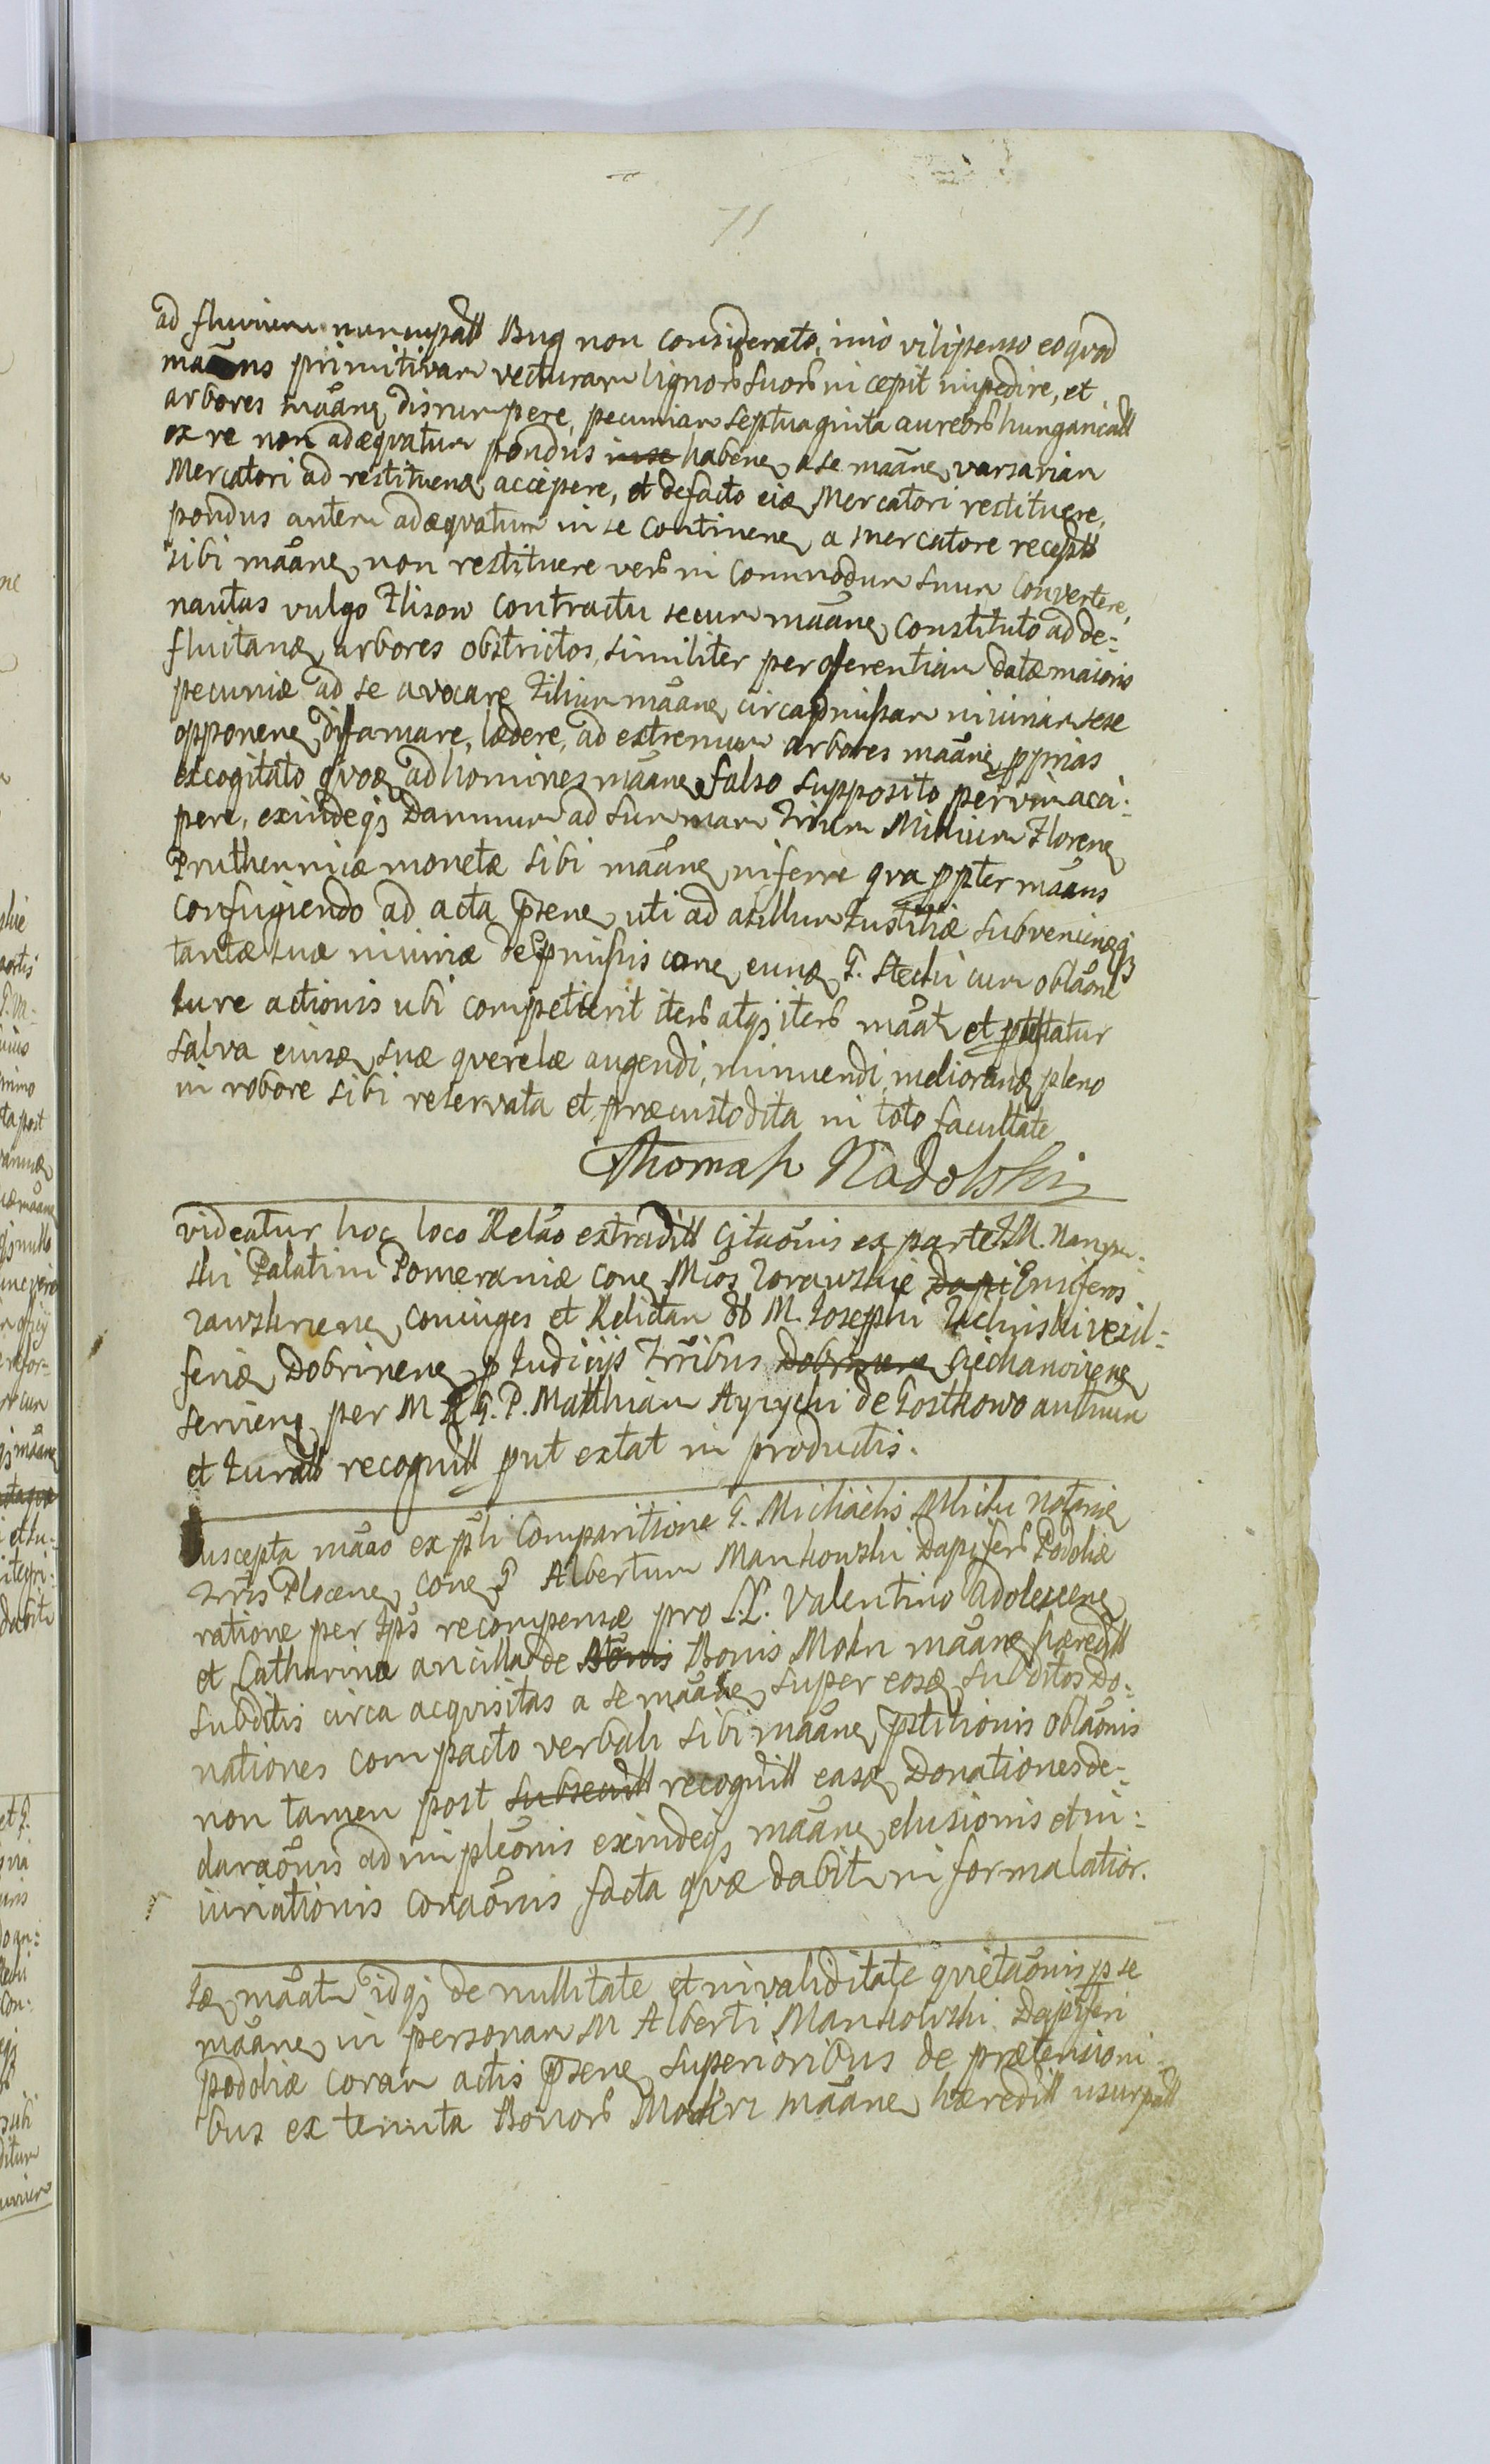 71
ad fluvium nuncupatt Bug non considerato, imo vilipenso eo quod
maans primitivam vecturam lignorum suorum incepit impedire, et
arbores maane disrumpere, pecuniam septuaginta aureorum hungaricall
ex re non adæquatum pondus in se habene a se maane varsaviam
Mercatori ad restituend accipere, et defacto eid Mercatori restituere,
pondus autem adæquatum in se continene a mercatore receptt
sibi maane non restituere vero in commodum suum convertere,
nautas vulgo Flisow contractu secum maane constituto ad de-
fluitand arbores obstrictos, similiter per oferentiam datæ maioris
pecuniæ ad se avocare Filium maane circa pmissam iniuriam sese
opponene, difamare, lædere, ad extremum arbores maane pprias
excogitato quod ad homines maane falso supposito per vim acci-
pere, exindeq damnum ad summam Trium Millium Florene
Pruthennicæ monetæ sibi maane inferre qua ppter maans
confugiendo ad acta psene uti ad asillum Iustitiæ subveniendq
tantæ suæ iniuriæ de pmissis cone eund G. Stecki cum oblaone
Iure actionis ubi competierit iterum atq iterum maat et ptestatur
salva eiusd suæ querelæ augendi, minuendi, meliorand pleno
in robore sibi reservata et præcustodita in toto facultate
Thomasz Nadolski
videatur hoc loco Relao extraditt Citaonis ex parte I.M.
ski Palatini Pomeraniæ cone Mcos Zorawskie Dapi Ensiferos
rawshiene coniuges et Relictam M. Iosephi vexil-
feri Dobrinene p Iudicijs Trribus Dobrinene Ciechanoviene
serviene per M G. P. Matthiam de Gostkowo authum
et Iuratt recognitt put extat in productis.
Suscepta maao ex psli Comparitione G. Michaelis Notarie
Trris Plocene cone G Albertum Mankowski Dapiferum Podoliæ
ratione per Ips recompensæ pro L.L. Valentino adolescene
et Catharina ancilla de Bonis Bonis Mokri maane hæreditt
subditis circa acquisitas a se maane super eosd subditos Do-
nationes compacto verbali sibi maane pstitionis oblaonis
non tamen post subsecutt recognitt easd Donationes de-
claraonis adimpleonis exindeq maane elusionis et in-
iuriationis conaonis facta quæ dabitur in forma latior.
Id maatr idq de nullitate et invaliditate quietaonis p se
maane in personam M Alberti Mankowski Dapiferi
podoliæ coram actis psene superioribus de prætensioni-
bus ex tenuta Bonorum Mokri maane hæreditt usurpatt